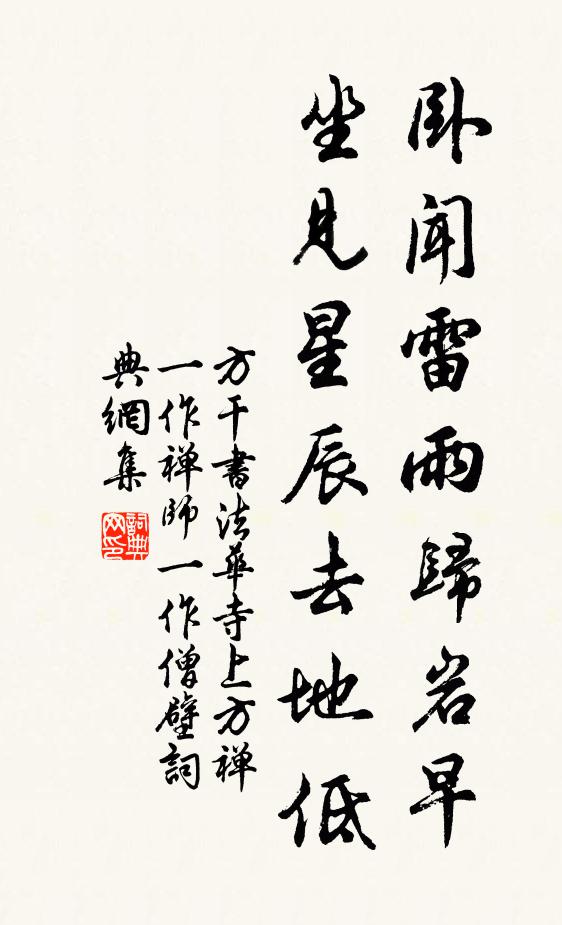 卧聞雷雨歸岩早
坐見星辰去地低
方干書法華寺上方禅
一作禅師一作僧壁詞
典網集
詞典
网印